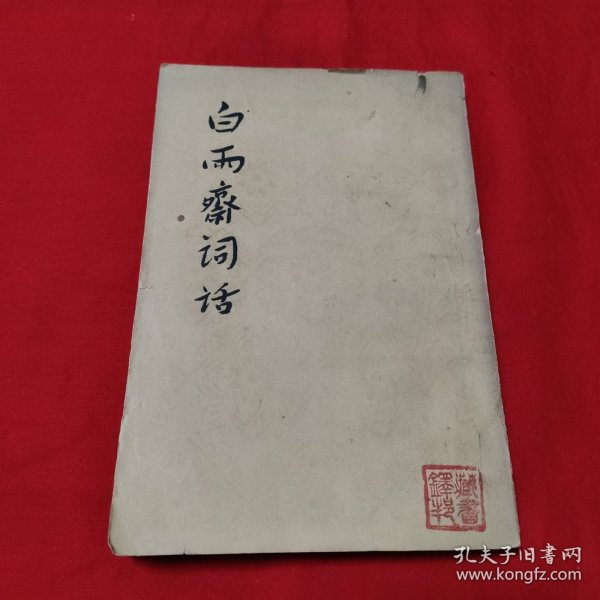 白雨齋词话
藏書
孔夫子旧書网
www.kongfz.com